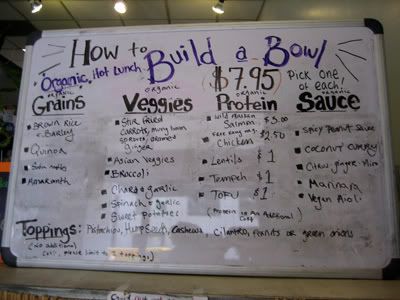 How to Build a Bowl
Organic, Hot Lunch $7.95 Pick one of each
organic
Grains
Brown Rice & Barley
Quinoa
Soba noodles
Amaranth
organic
Veggies
Stir fried
carrots, mung bean
sprouts, almond
ginger
Asian Veggies
Broccoli
Chard & garlic
Spinach & garlic
Sweet Potatoes
organic
Protein
Wild Alaskan
Salmon $3.00
Free range
Chicken $2.50
Lentils $1
Tempeh $1
Tofu $1
(Protein is An Additional
Cost)
organic
Sauce
Spicy Peanut Sauce
Coconut Curry
Citrus Ginger-Miso
Marinara
Vegan Aioli
Toppings: Pistachios, Hemp Seeds, Cashews, Cilantro, Peanuts or green onions
(No additional
Cost, please limit to 2 toppings)